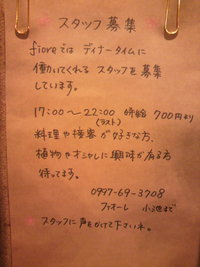 スタッフ募集
fioreでは ディナータイムに
働いてくれる スタッフを募集
しています。
17:00〜22:00 時給 700円より
(ラスト)
料理や接客が好きな方、
植物やオシャレに興味が有る方
待ってます。
0997-69-3708
フィオーレ 小池まで
スタッフに声をかけて下さいネ。